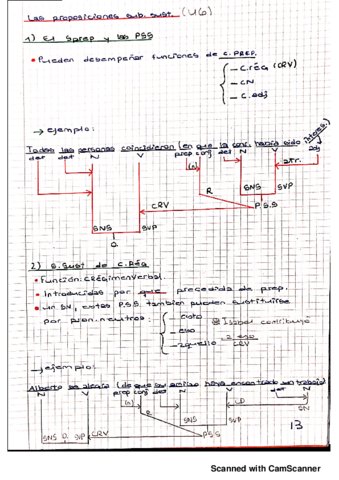 Las proposiciones sub. sust. (U6)
1) El Sprep y las PSS
• Pueden desempeñar funciones de C.PREP.
- C.rég (CRV)
- CN
- C.adj
→ ejemplo:
Todas las personas coincidieron (en que la conc. había sido
det det N V prep conj det N V adj
(n) atr.
R SNS SVP
CRV P.S.S
SNS SVP
O
2) S.Sust de C.Rég
• Función: CRégimenVerbal.
• Introducidas por que precedida de prep.
• Un SN, estas P.S.S. también pueden sustituirse
por pron. neutros: - esto
- eso @ Isabel contribuyó
- aquello a eso
CRV
→ ejemplo:
Alberto se alegró (de que su amigo haya encontrado un trabajo)
N V prep conj det N V det N
(n) CD SN
R SNS SVP
SNS O. SVP CRV PSS
13
Scanned with CamScanner